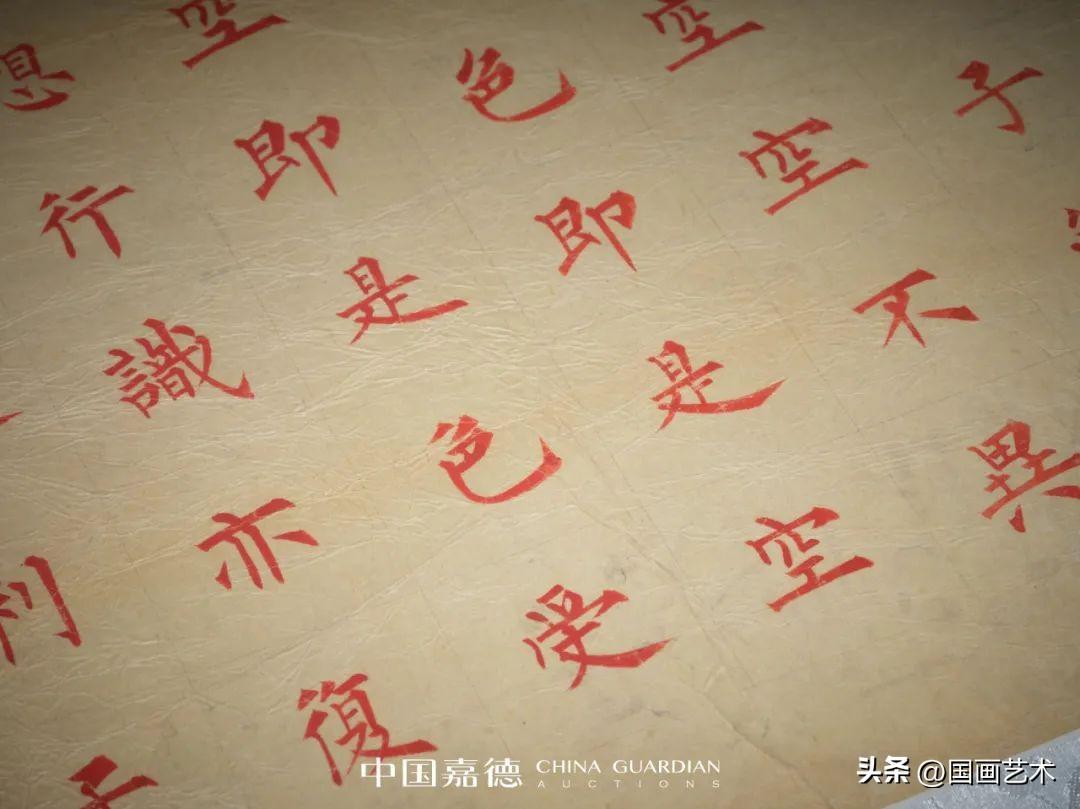 子
空空不異
色即是空
空即是色受
想行識亦復
利子
中国嘉德 CHINA GUARDIAN
AUCTIONS
头条 @国画艺术